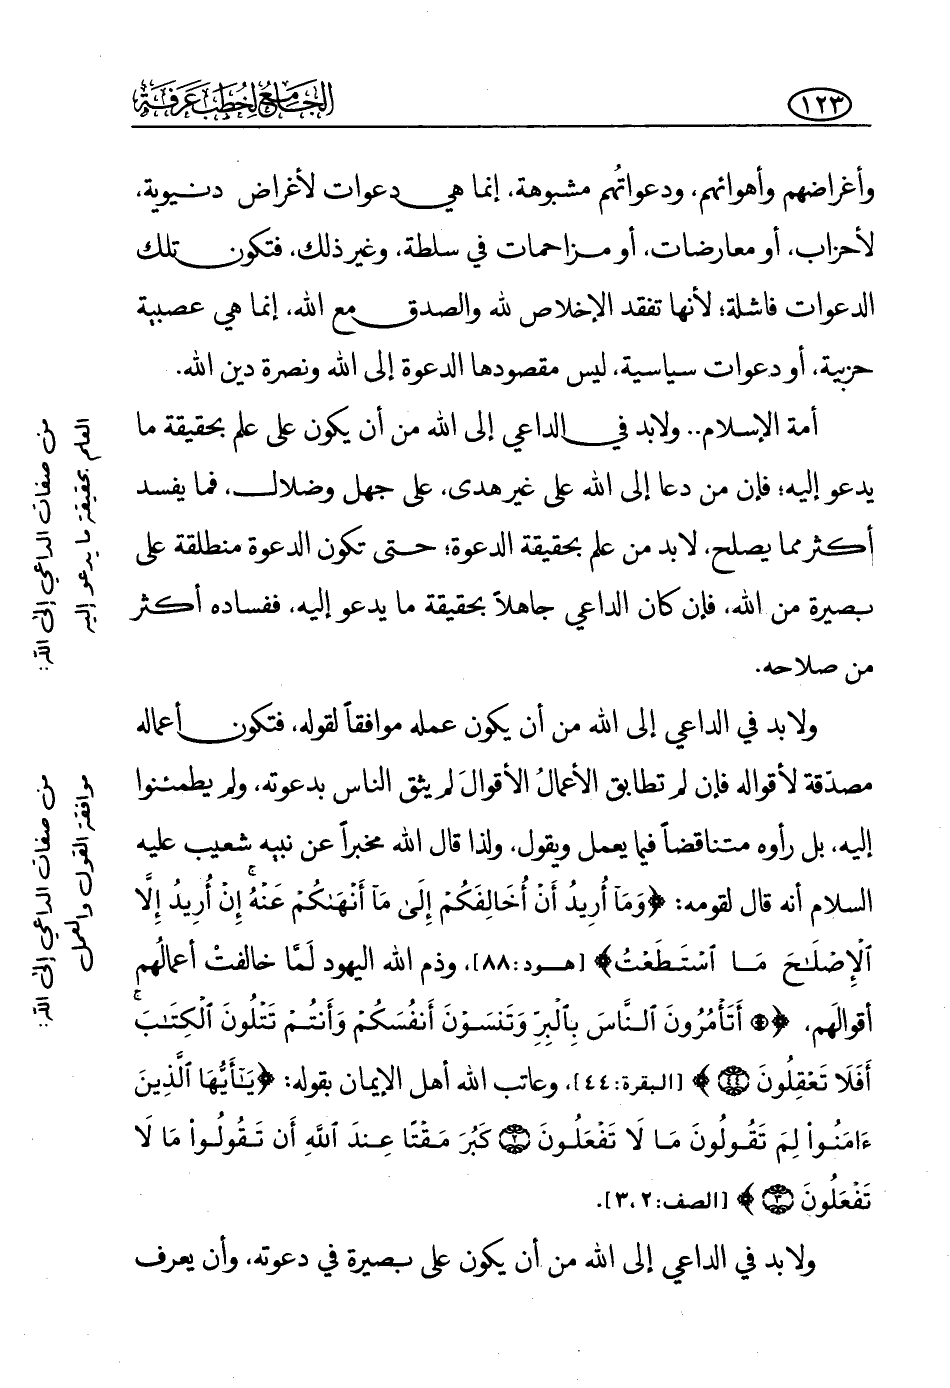 ١٢٣
الجامع لخطب عرفة
وأغراضهم وأهوائهم، ودعواتُهم مشبوهة، إنما هي دعوات لأغراض دنيوية،
لأحزاب، أو معارضات، أو مزاحمات في سلطة، وغير ذلك، فتكون تلك
الدعوات فاشلة؛ لأنها تفقد الإخلاص لله والصدق مع الله، إنما هي عصبية
حزبية، أو دعوات سياسية، ليس مقصودها الدعوة إلى الله ونصرة دين الله.
أمة الإسلام.. ولابد في الداعي إلى الله من أن يكون على علم بحقيقة ما
يدعو إليه؛ فإن من دعا إلى الله على غير هدى، على جهل وضلال، فما يفسد
أكثر مما يصلح، لابد من علم بحقيقة الدعوة؛ حتى تكون الدعوة منطلقة على
بصيرة من الله، فإن كان الداعي جاهلاً بحقيقة ما يدعو إليه، ففساده أكثر
من صلاحه.
ولابد في الداعي إلى الله من أن يكون عمله موافقاً لقوله، فتكون أعماله
مصدّقة لأقواله فإن لم تطابق الأعمالُ الأقوالَ لم يثق الناس بدعوته، ولم يطمئنوا
إليه، بل رأوه متناقضاً فيما يعمل ويقول، ولذا قال الله مخبراً عن نبيه شعيب عليه
السلام أنه قال لقومه: ﴿وَمَآ أُرِيدُ أَنْ أُخَالِفَكُمْ إِلَىٰ مَآ أَنْهَىٰكُمْ عَنْهُ ۚ إِنْ أُرِيدُ إِلَّا
ٱلْإِصْلَٰحَ مَا ٱسْتَطَعْتُ﴾ [هود:٨٨]، وذم الله اليهود لَمَّا خالفتْ أعمالُهم
أقوالَهم، ﴿۞ أَتَأْمُرُونَ ٱلنَّاسَ بِٱلْبِرِّ وَتَنسَوْنَ أَنفُسَكُمْ وَأَنتُمْ تَتْلُونَ ٱلْكِتَٰبَ ۚ
أَفَلَا تَعْقِلُونَ ٤٤﴾ [البقرة:٤٤]، وعاتب الله أهل الإيمان بقوله: ﴿يَٰٓأَيُّهَا ٱلَّذِينَ
ءَامَنُوا۟ لِمَ تَقُولُونَ مَا لَا تَفْعَلُونَ ٢ كَبُرَ مَقْتًا عِندَ ٱللَّهِ أَن تَقُولُوا۟ مَا لَا
تَفْعَلُونَ ٣﴾ [الصف:٢،٣].
ولابد في الداعي إلى الله من أن يكون على بصيرة في دعوته، وأن يعرف
من صفات الداعي إلى الله:
العلم بحقيقة ما يدعو إليه
من صفات الداعي إلى الله:
موافقة القول والعمل